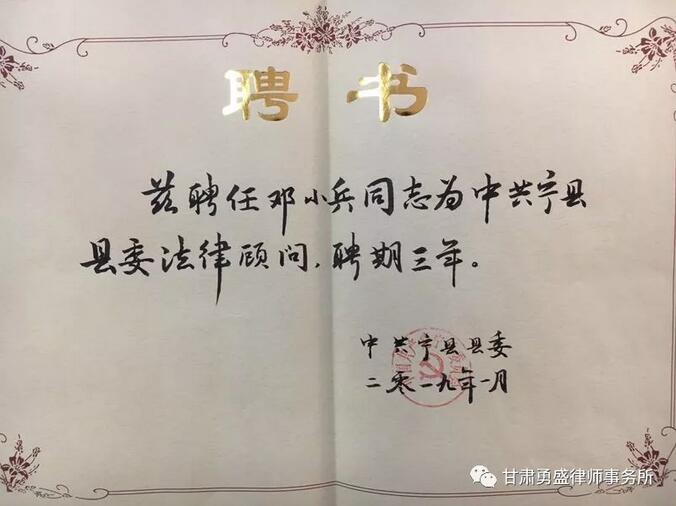 聘书
兹聘任邓小兵同志为中共宁县
县委法律顾问，聘期三年。
中共宁县县委
二零一九年一月
甘肃勇盛律师事务所